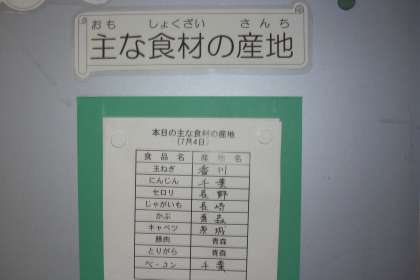 おも しょくざい さんち
主な食材の産地
本日の主な食材の産地
(7月4日)
食品名 産地名
玉ねぎ 香川
にんじん 千葉
セロリ 長野
じゃがいも 長崎
かぶ 青森
キャベツ 茨城
豚肉 青森
とりがら 青森
ベーコン 千葉